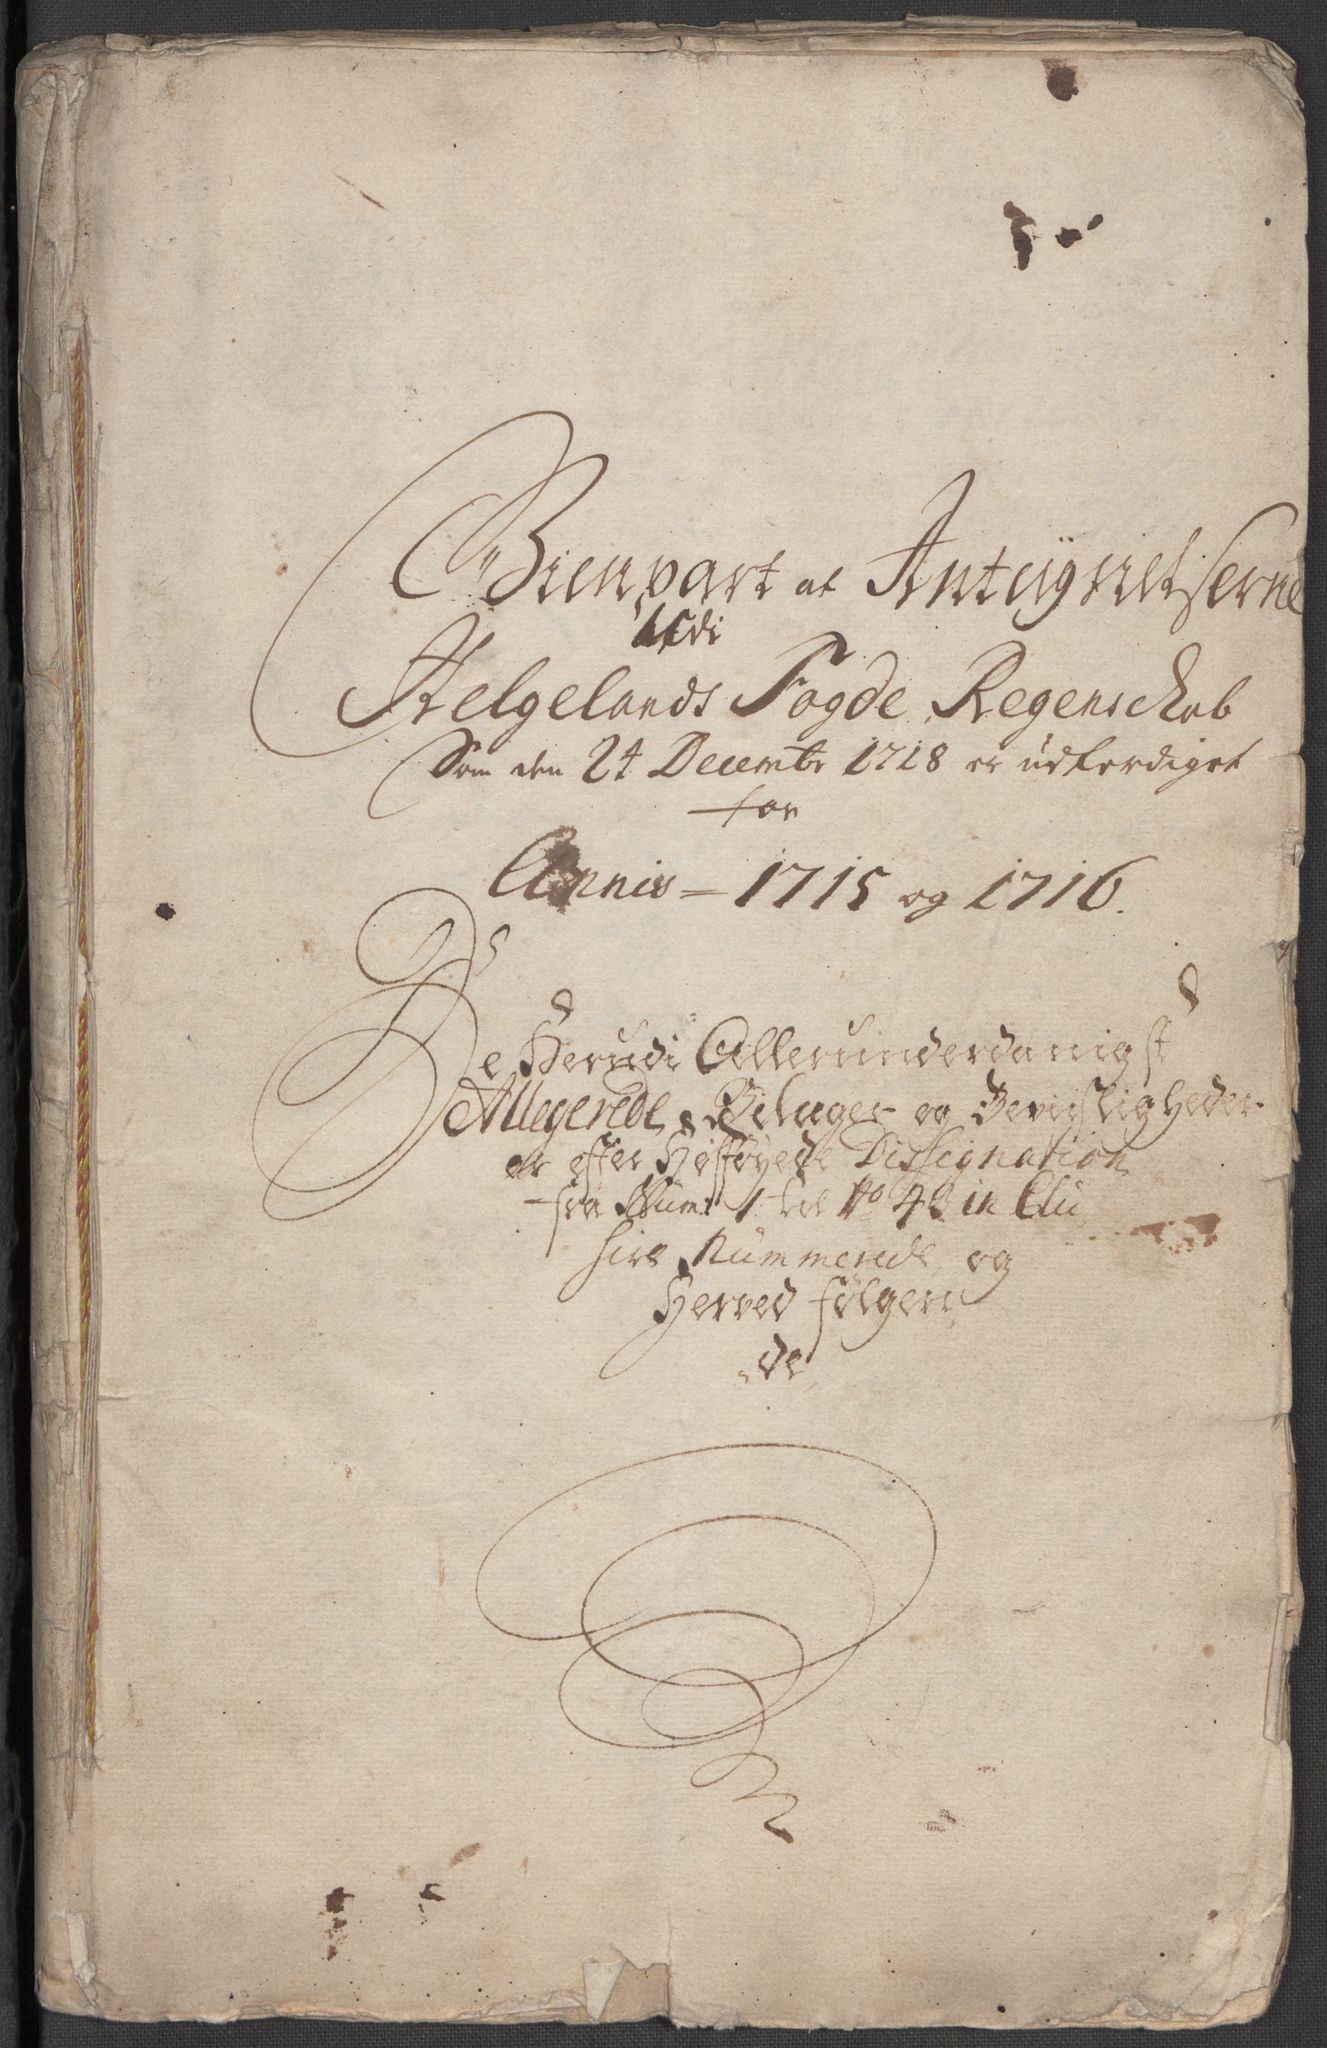 Gienpart af Antegnelserne
udi
Helgelands Fogde Regenskab
Som den 24 Decembr 1718 er udferdiget
for
Annis = 1715 og 1716.
De Herudi Allerunderdanigst
Allegerede Bilager og Beviisligheder
er efter Hosføyede Dissignation
fra Num: 1 til No in Clu
sive Nummerede, og
Herved følgen
de